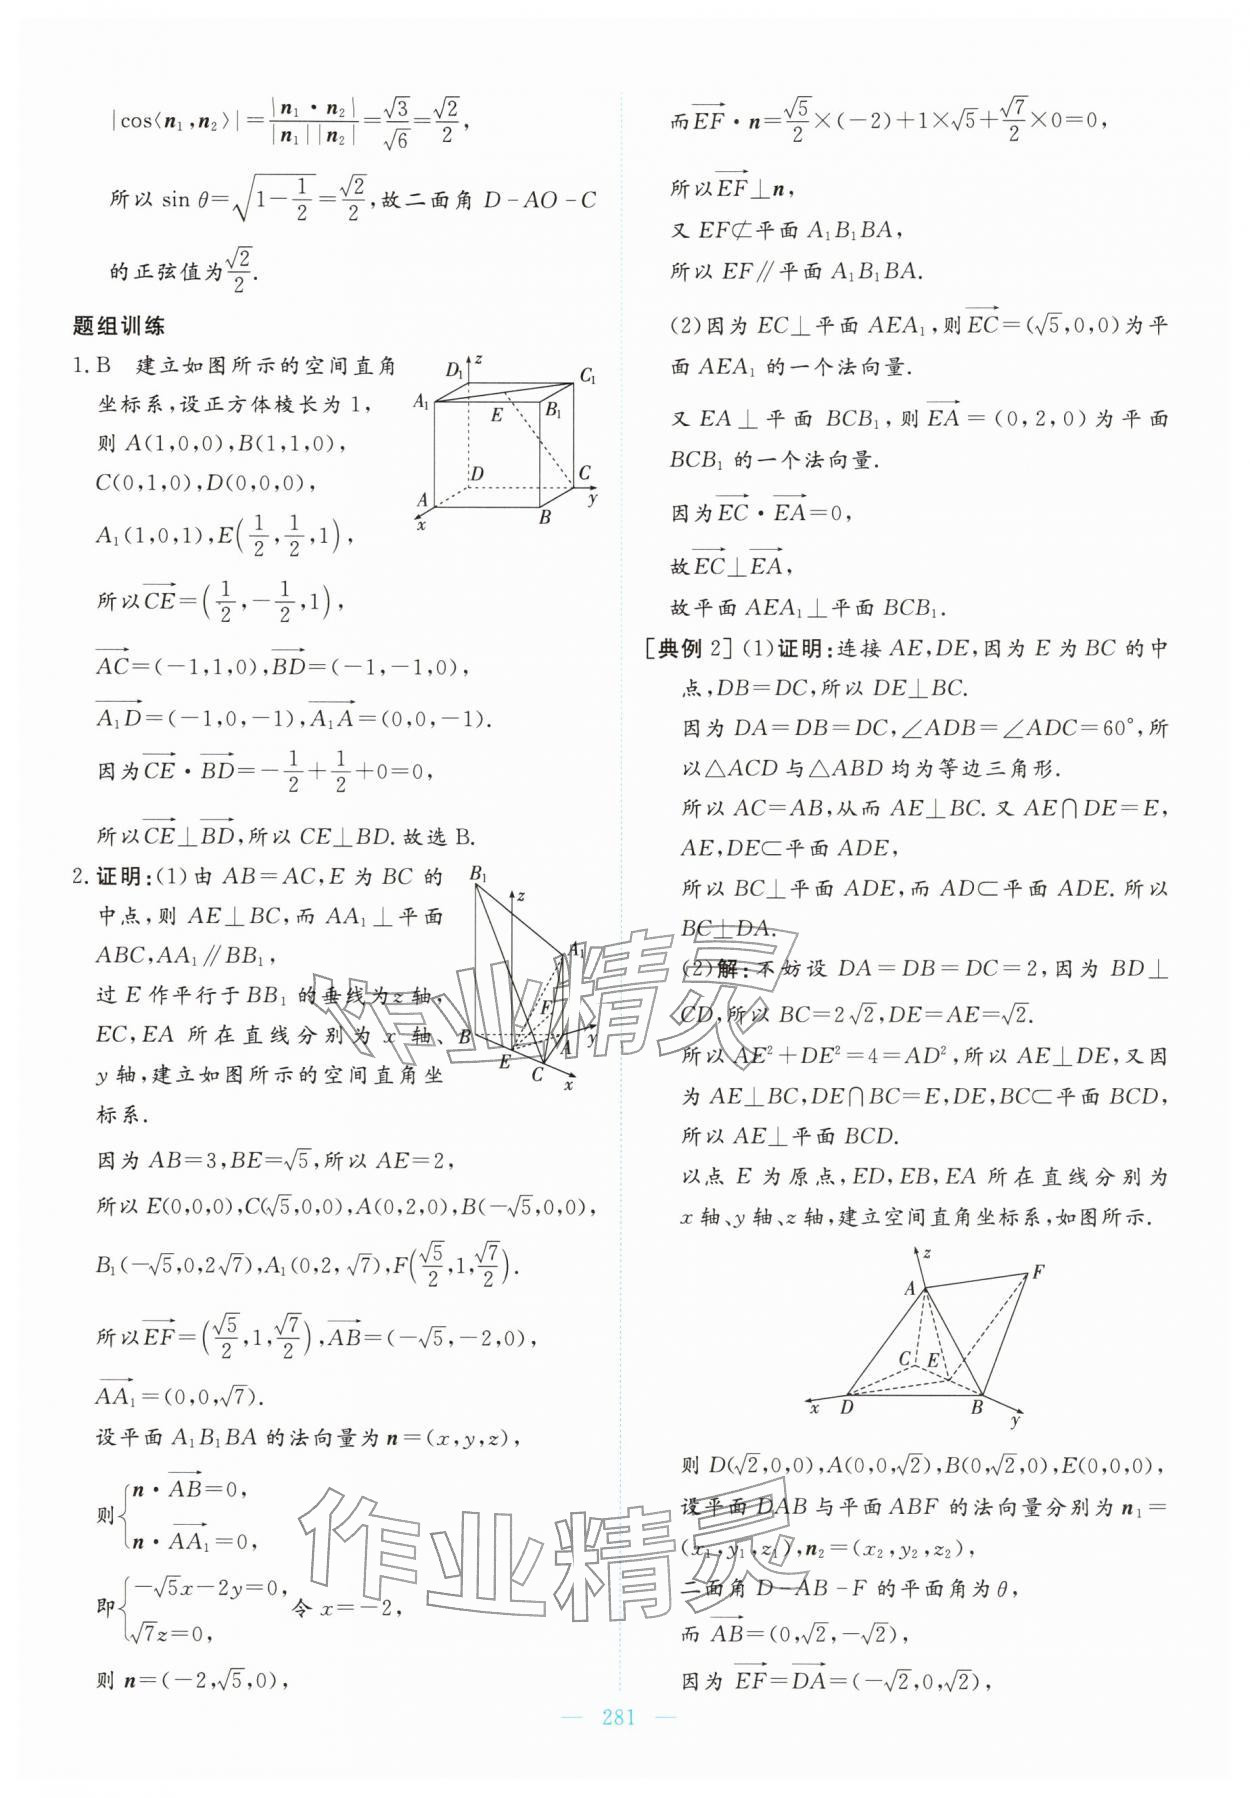 |cos⟨n₁,n₂⟩|=|n₁·n₂|/(|n₁||n₂|)=√3/√6=√2/2,
所以 sin θ=√(1-1/2)=√2/2,故二面角 D-AO-C
的正弦值为√2/2.
题组训练
1.B 建立如图所示的空间直角
坐标系,设正方体棱长为 1,
则 A(1,0,0),B(1,1,0),
C(0,1,0),D(0,0,0),
A₁(1,0,1),E(1/2,1/2,1),
所以CE→=(1/2,-1/2,1),
AC→=(-1,1,0),BD→=(-1,-1,0),
A₁D→=(-1,0,-1),A₁A→=(0,0,-1).
因为CE→·BD→=-1/2+1/2+0=0,
所以CE→⊥BD→,所以 CE⊥BD.故选 B.
D₁ z C₁
A₁ E B₁
D C
A B y
x
2.证明:(1)由 AB=AC,E 为 BC 的
中点,则 AE⊥BC,而 AA₁⊥平面
ABC,AA₁∥BB₁,
过 E 作平行于 BB₁ 的垂线为 z 轴,
EC,EA 所在直线分别为 x 轴、
y 轴,建立如图所示的空间直角坐
标系.
B₁ z
A₁
F
B A y
E C x
因为 AB=3,BE=√5,所以 AE=2,
所以 E(0,0,0),C(√5,0,0),A(0,2,0),B(-√5,0,0),
B₁(-√5,0,2√7),A₁(0,2,√7),F(√5/2,1,√7/2).
所以EF→=(√5/2,1,√7/2),AB→=(-√5,-2,0),
AA₁→=(0,0,√7).
设平面 A₁B₁BA 的法向量为 n=(x,y,z),
则{n·AB→=0,
n·AA₁→=0,
即{-√5x-2y=0,
√7z=0, 令 x=-2,
则 n=(-2,√5,0),
而EF→·n=√5/2×(-2)+1×√5+√7/2×0=0,
所以EF→⊥n,
又 EF⊄平面 A₁B₁BA,
所以 EF∥平面 A₁B₁BA.
(2)因为 EC⊥平面 AEA₁,则EC→=(√5,0,0)为平
面 AEA₁ 的一个法向量.
又 EA⊥平面 BCB₁,则EA→=(0,2,0)为平面
BCB₁ 的一个法向量.
因为EC→·EA→=0,
故EC→⊥EA→,
故平面 AEA₁⊥平面 BCB₁.
[典例 2](1)证明:连接 AE,DE,因为 E 为 BC 的中
点,DB=DC,所以 DE⊥BC.
因为 DA=DB=DC,∠ADB=∠ADC=60°,所
以△ACD 与△ABD 均为等边三角形.
所以 AC=AB,从而 AE⊥BC.又 AE∩DE=E,
AE,DE⊂平面 ADE,
所以 BC⊥平面 ADE,而 AD⊂平面 ADE.所以
BC⊥DA.
(2)解:不妨设 DA=DB=DC=2,因为 BD⊥
CD,所以 BC=2√2,DE=AE=√2.
所以 AE²+DE²=4=AD²,所以 AE⊥DE,又因
为 AE⊥BC,DE∩BC=E,DE,BC⊂平面 BCD,
所以 AE⊥平面 BCD.
以点 E 为原点,ED,EB,EA 所在直线分别为
x 轴、y 轴、z 轴,建立空间直角坐标系,如图所示.
z
A F
C E
x D B y
则 D(√2,0,0),A(0,0,√2),B(0,√2,0),E(0,0,0),
设平面 DAB 与平面 ABF 的法向量分别为 n₁=
(x₁,y₁,z₁),n₂=(x₂,y₂,z₂),
二面角 D-AB-F 的平面角为 θ,
而 AB→=(0,√2,-√2),
因为 EF→=DA→=(-√2,0,√2),
作业精灵
作业精灵
281